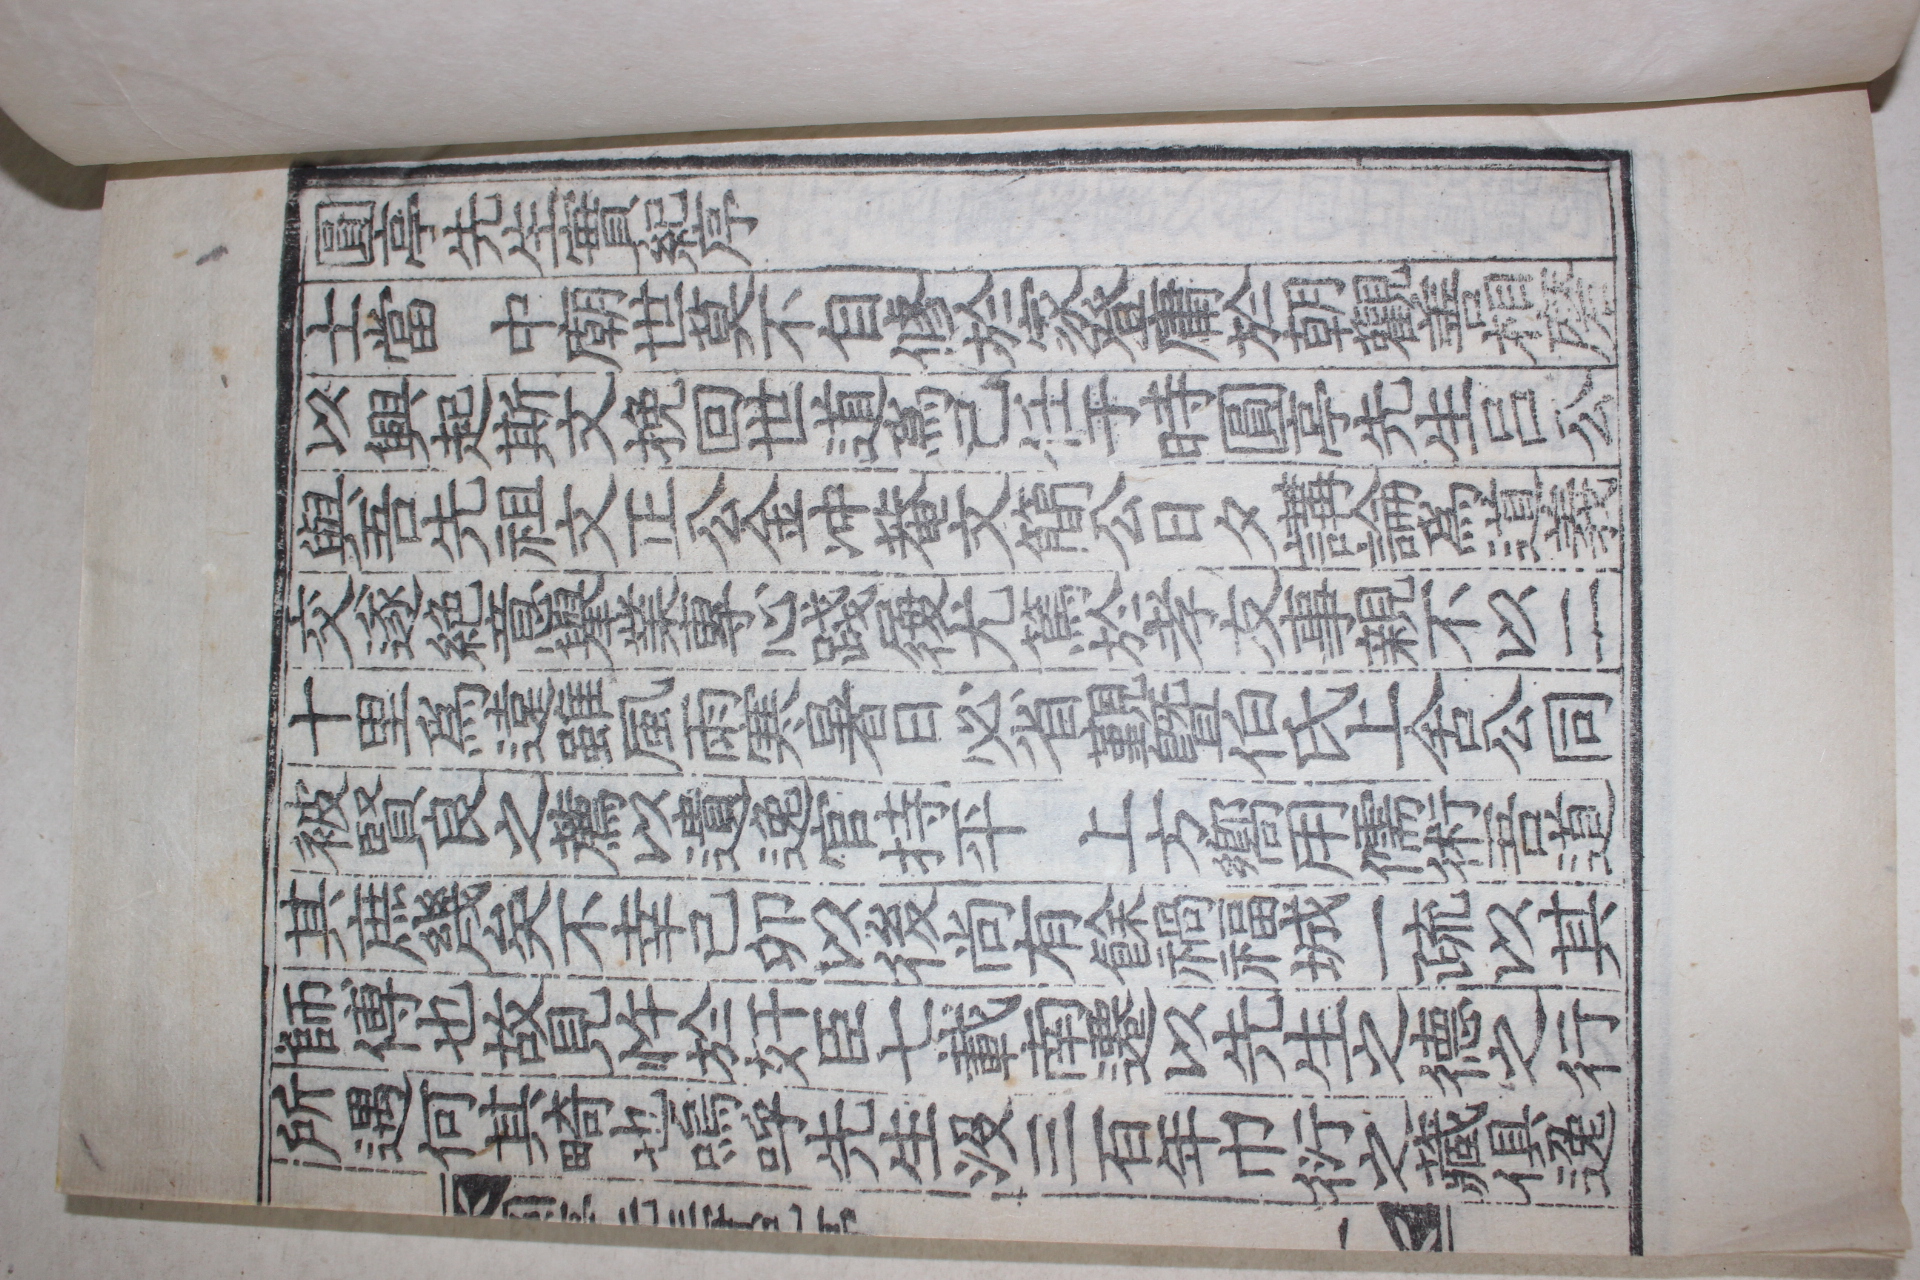 圓亭先生實紀序
士當　中廟世莫不自修於家登庸於朝觀善相磨
以興起斯文挽回世道爲己任于時圓亭先生呂公
與吾先祖文正公金冲菴文簡公日夕講論爲道義
交遂絶意擧業專心踐履尤篤於孝友事親不以二
十里爲遠雖風雨寒暑日必省覲曁伯氏上舍公同
被賢良之薦以遺逸官持平　上方嚮用儒術吾道
其庶幾矣不幸己卯以後尚有餘禍福城一疏以其
師傅也故見忤於奸臣七載南遷以先生之德之行
所遇何其畸也嗚呼先生沒三百年巾衍之藏俱逸